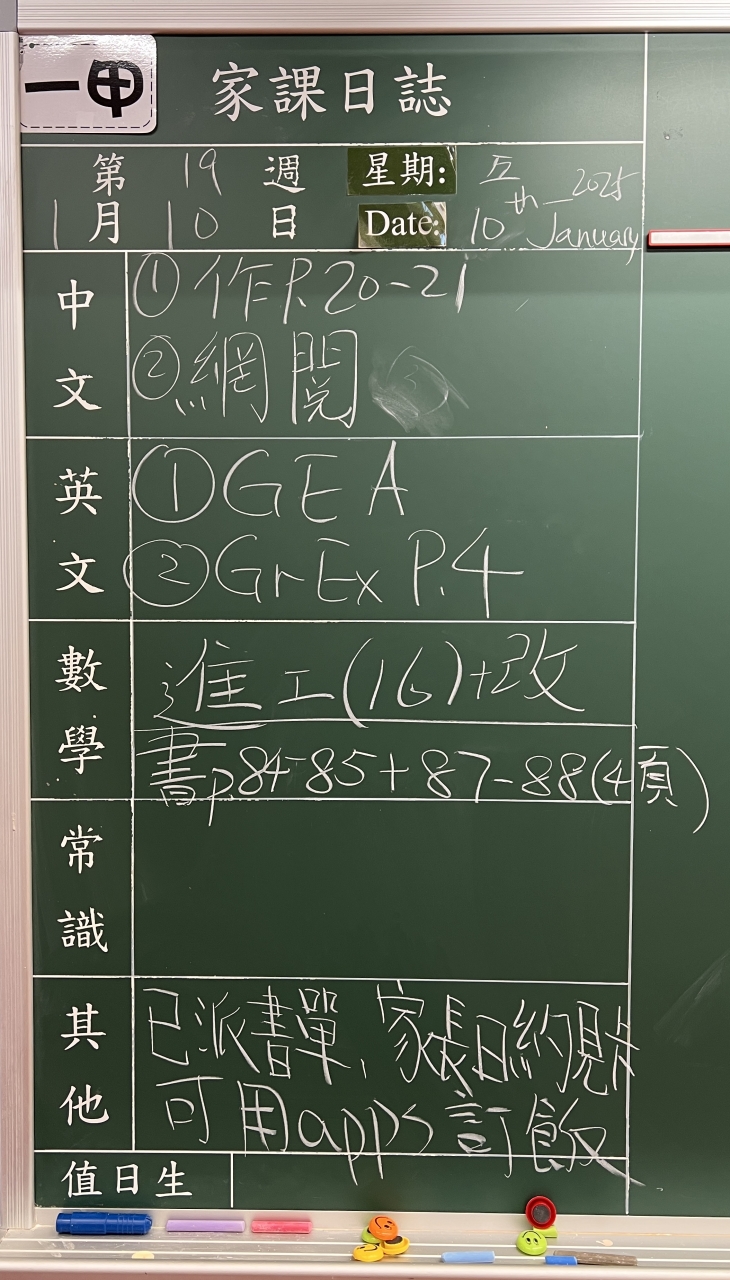 一甲
家課日誌
第 19 週 星期: 五
1月 10 日 Date: 10th January 2025
中文
① 作P.20-21
② 網閱
英文
① GEA
② GrEx P.4
數學
進工(16)+改
書p84-85+87-88(4頁)
常識
其他
已派書單,家長日約見
可用apps訂飯
值日生